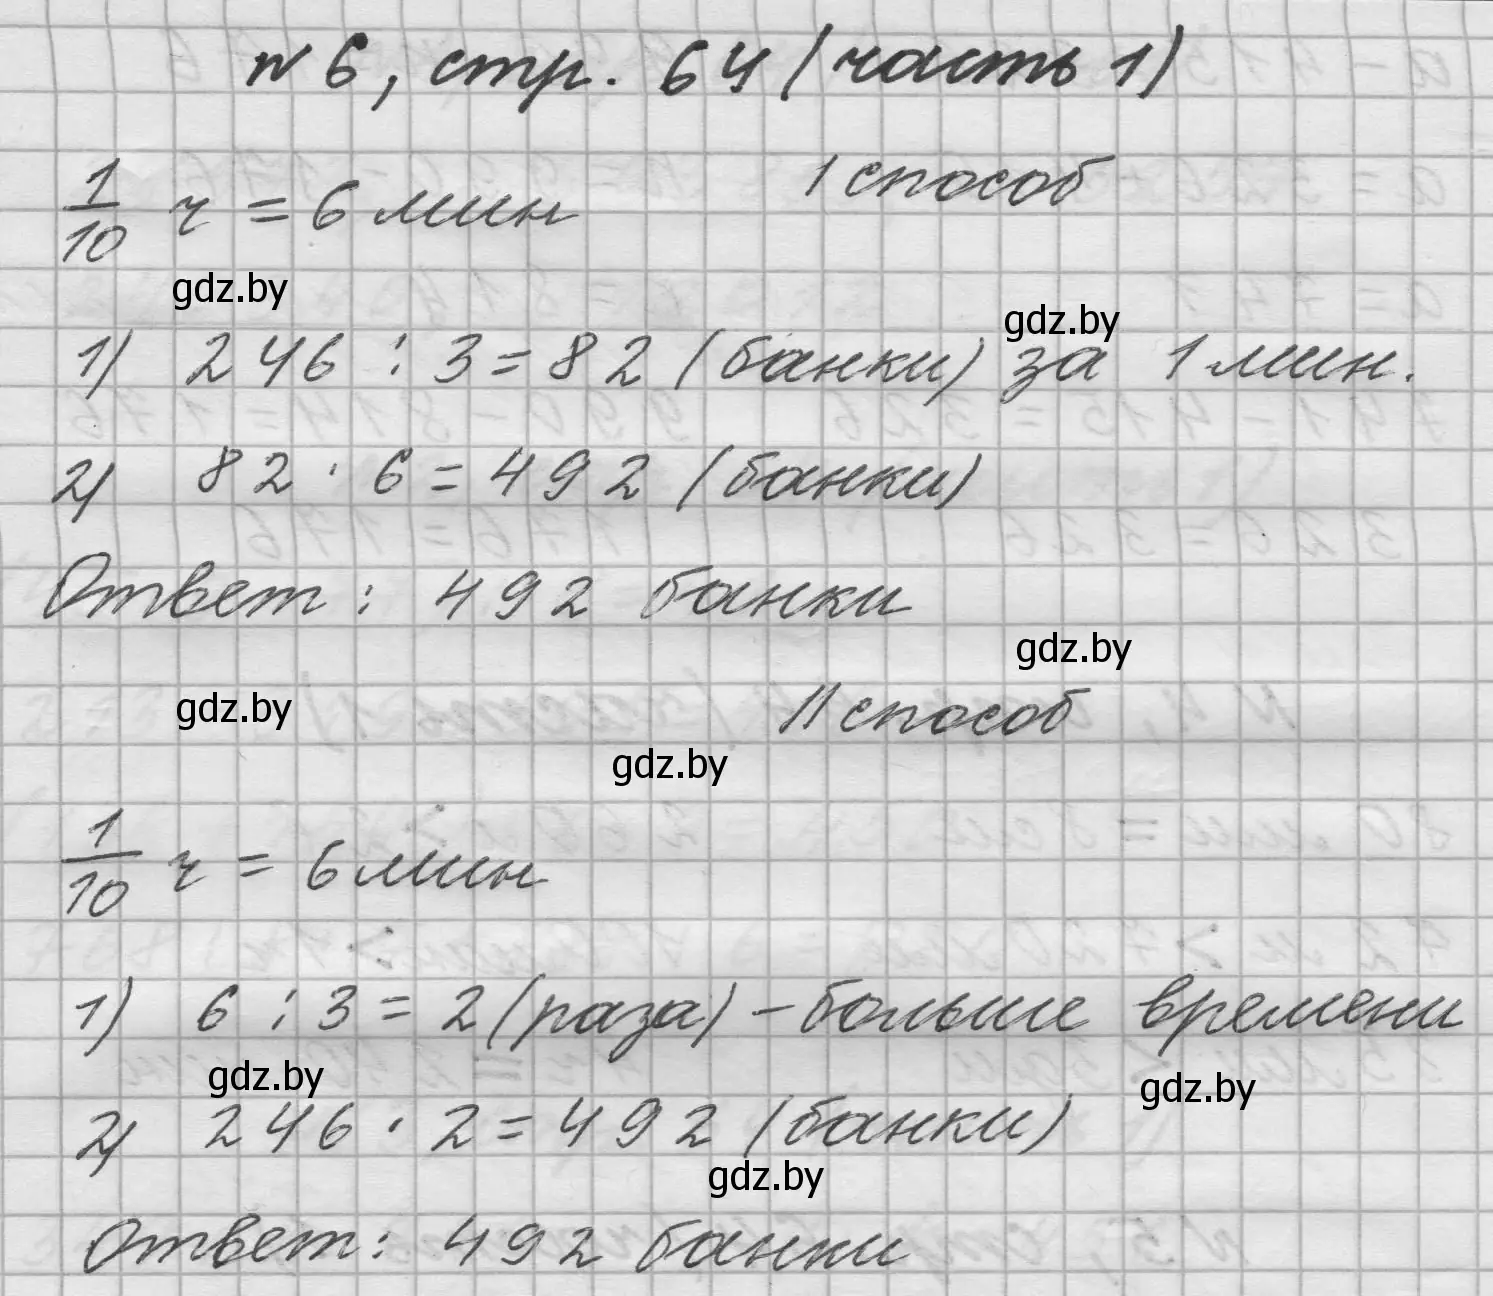 № 6, стр. 64 (часть 1)
I способ
1/10 ч = 6 мин
gdz.by
gdz.by
1) 246 : 3 = 82 (банки) за 1 мин.
2) 82 · 6 = 492 (банки)
Ответ: 492 банки
gdz.by
gdz.by
II способ
gdz.by
1/10 ч = 6 мин
1) 6 : 3 = 2 (раза) – больше времени
gdz.by
gdz.by
2) 246 · 2 = 492 (банки)
gdz.by
Ответ: 492 банки